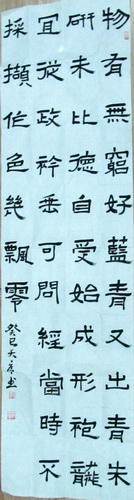 物有無窮好藍青又出青朱
研未比德自受始成形袍龍
宜從政衿垂可問經當時不
採擷作色幾飄零
癸巳